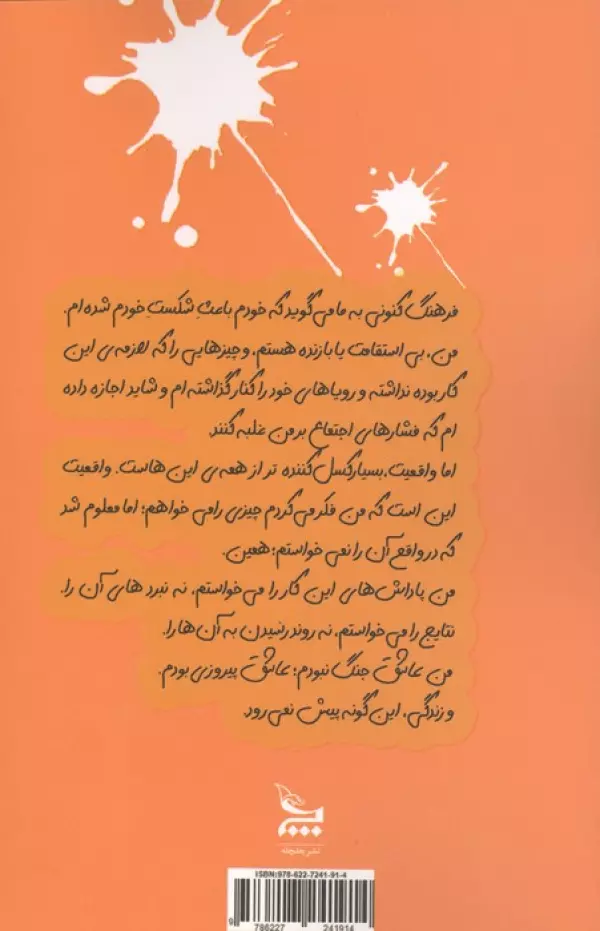 فرهنگ کنونی به ما می گوید که خودم باعثِ شکستِ خودم شده ام.
من، بی استقامت یا بازنده هستم، و چیزهایی را که لازمه ی این
کار بوده نداشته و رویاهای خود را کنار گذاشته ام و شاید اجازه داده
ام که فشارهای اجتماع بر من غلبه کنند.
اما واقعیت، بسیار کسل کننده تر از همه ی این هاست. واقعیت
این است که من فکر می کردم چیزی را می خواهم؛ اما معلوم شد
که در واقع آن را نمی خواستم؛ همین.
من پاداش های این کار را می خواستم، نه نبرد های آن را.
نتایج را می خواستم، نه روند رسیدن به آن ها را.
من عاشق جنگ نبودم؛ عاشق پیروزی بودم.
و زندگی، این گونه پیش نمی رود.
ISBN:978-622-7241-91-4
9 786227 241914